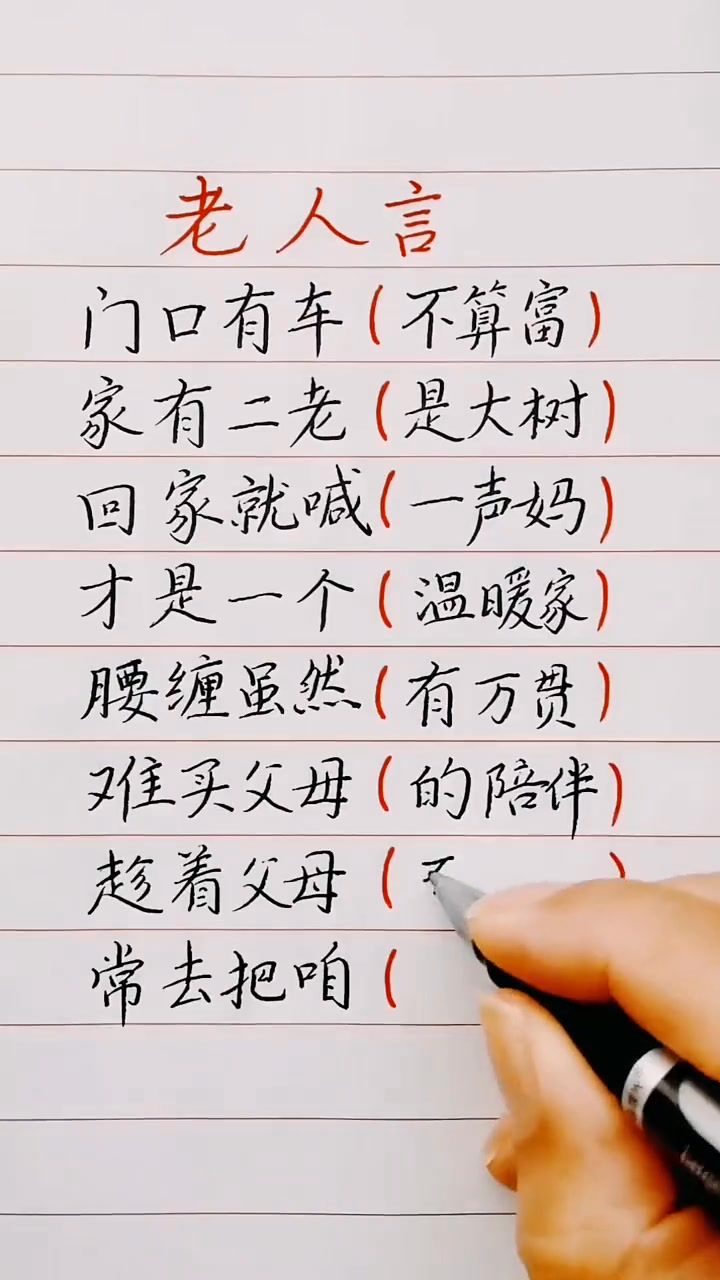 老人言
门口有车(不算富)
家有二老(是大树)
回家就喊(一声妈)
才是一个(温暖家)
腰缠虽然(有万贯)
难买父母(的陪伴)
趁着父母( )
常去把咱(